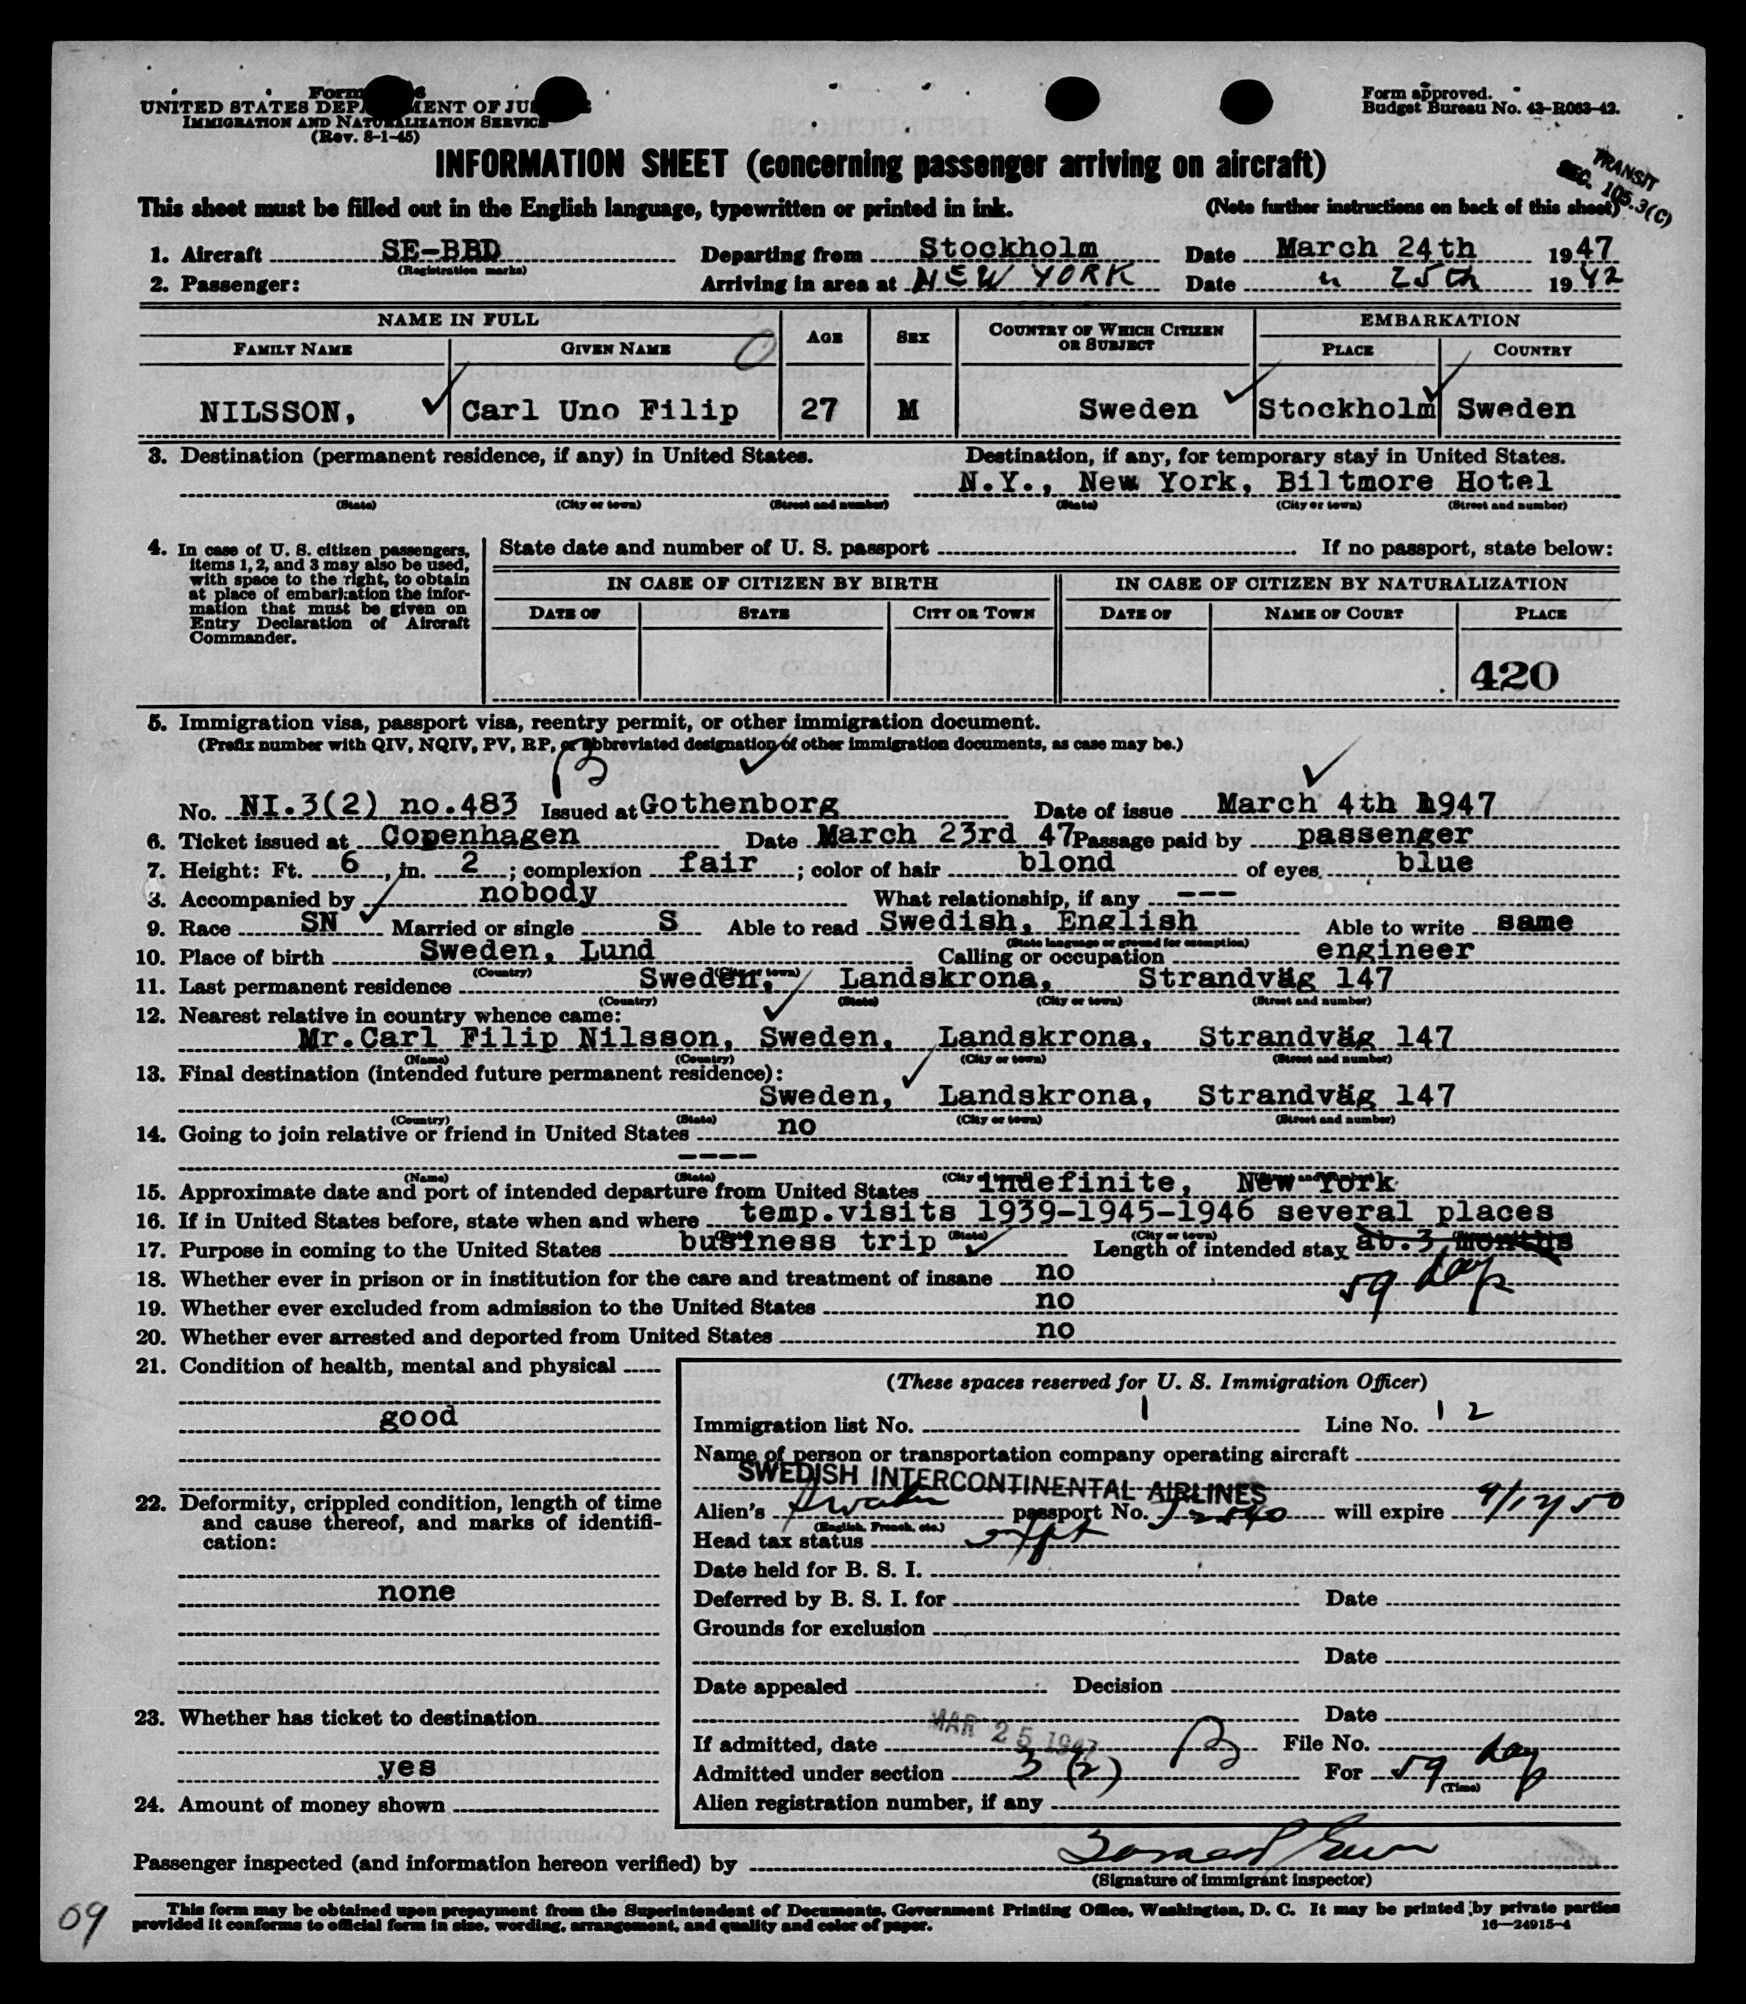 UNITED STATES DEP MENT OF JU
IMMIGRATION AND NATURALIZATION SERVICE
(Rev. 8-1-45)
Form approved.
Budget Bureau No. 43-R063-42.
INFORMATION SHEET (concerning passenger arriving on aircraft)
TRANSIT
SEC. 105.3(C)
This sheet must be filled out in the English language, typewritten or printed in ink. (Note further instructions on back of this sheet)
1. Aircraft SE-BBD Departing from Stockholm Date March 24th 1947
(Registration marks)
2. Passenger: Arriving in area at NEW YORK Date " 25th 1942
NAME IN FULL AGE SEX COUNTRY OF WHICH CITIZEN OR SUBJECT EMBARKATION
FAMILY NAME GIVEN NAME PLACE COUNTRY
NILSSON, Carl Uno Filip 27 M Sweden Stockholm Sweden
3. Destination (permanent residence, if any) in United States. Destination, if any, for temporary stay in United States.
N.Y., New York, Biltmore Hotel
(State) (City or town) (Street and number) (State) (City or town) (Street and number)
4. In case of U. S. citizen passengers, items 1, 2, and 3 may also be used, with space to the right, to obtain at place of embarkation the information that must be given on Entry Declaration of Aircraft Commander.
State date and number of U. S. passport If no passport, state below:
IN CASE OF CITIZEN BY BIRTH IN CASE OF CITIZEN BY NATURALIZATION
DATE OF STATE CITY OR TOWN DATE OF NAME OF COURT PLACE
420
5. Immigration visa, passport visa, reentry permit, or other immigration document.
(Prefix number with QIV, NQIV, PV, RP, or abbreviated designation of other immigration documents, as case may be.)
No. NI.3(2) no.483 Issued at Gothenborg Date of issue March 4th 1947
6. Ticket issued at Copenhagen Date March 23rd 47 Passage paid by passenger
7. Height: Ft. 6, in. 2; complexion fair; color of hair blond of eyes blue
8. Accompanied by nobody What relationship, if any ---
9. Race SN Married or single S Able to read Swedish, English Able to write same
(State language or ground for exemption)
10. Place of birth Sweden, Lund Calling or occupation engineer
(Country) (City or town)
11. Last permanent residence Sweden, Landskrona, Strandväg 147
(Country) (State) (City or town) (Street and number)
12. Nearest relative in country whence came:
Mr.Carl Filip Nilsson, Sweden, Landskrona, Strandväg 147
(Name) (Country) (City or town) (Street and number)
13. Final destination (intended future permanent residence):
Sweden, Landskrona, Strandväg 147
(Country) (State) (City or town) (Street and number)
14. Going to join relative or friend in United States no
----
(Name) (State) (City or town) (Street and number)
15. Approximate date and port of intended departure from United States indefinite, New York
16. If in United States before, state when and where temp.visits 1939-1945-1946 several places
(Date) (State) (City or town)
17. Purpose in coming to the United States business trip Length of intended stay ab.3 months
59 days
18. Whether ever in prison or in institution for the care and treatment of insane no
19. Whether ever excluded from admission to the United States no
20. Whether ever arrested and deported from United States no
21. Condition of health, mental and physical
good
22. Deformity, crippled condition, length of time and cause thereof, and marks of identification:
none
23. Whether has ticket to destination
yes
24. Amount of money shown
(These spaces reserved for U. S. Immigration Officer)
Immigration list No. 1 Line No. 12
Name of person or transportation company operating aircraft
SWEDISH INTERCONTINENTAL AIRLINES
Alien's passport No. will expire 9/17/50
(English, French, etc.)
Head tax status
Date held for B. S. I.
Deferred by B. S. I. for Date
Grounds for exclusion
Date
Date appealed Decision
Date
If admitted, date MAR 25 1947 File No.
Admitted under section 3 (2) For 59 days
(Time)
Alien registration number, if any
Passenger inspected (and information hereon verified) by
(Signature of immigrant inspector)
09
This form may be obtained upon prepayment from the Superintendent of Documents, Government Printing Office, Washington, D. C. It may be printed by private parties
provided it conforms to official form in size, wording, arrangement, and quality and color of paper. 16—24915-4